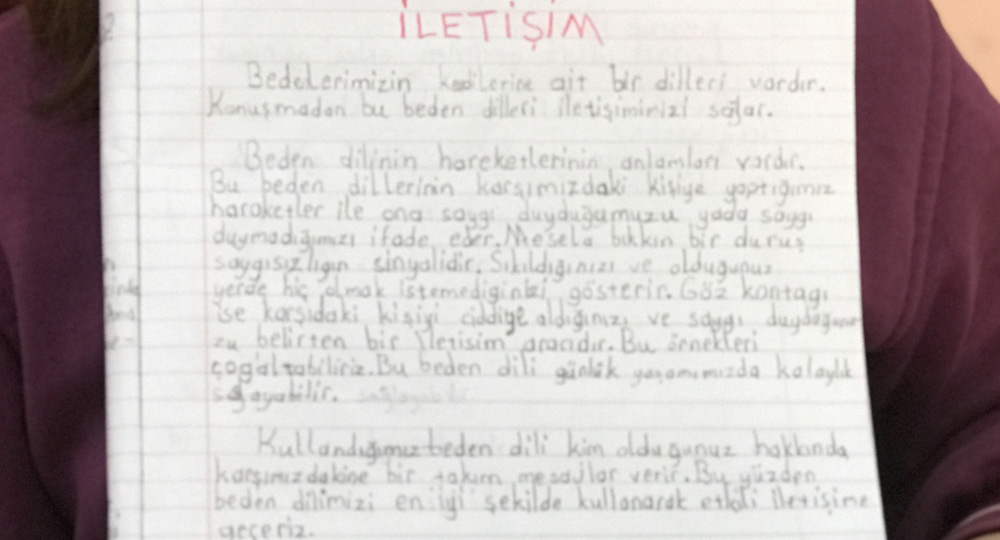 İLETİŞİM
Bedelerimizin kedilerine ait bir dilleri vardır.
Konuşmadan bu beden dilleri iletişimimizi sağlar.
Beden dilinin hareketlerinin anlamları vardır.
Bu beden dillerinin karşımızdaki kişiye yaptığımız
haraketler ile ona saygı duyduğumuzu yada saygı
duymadığımızı ifade eder. Mesela bıkkın bir duruş
saygısızlığın sinyalidir. Sıkıldığınızı ve olduğunuz
yerde hiç olmak istemediginizi gösterir. Göz kontağı
ise karşıdaki kişiyi ciddiye aldığınızı ve saygı duyduğunu-
zu belirten bir iletişim aracıdır. Bu örnekleri
çoğaltabiliriz. Bu beden dili günlük yaşamımızda kolaylık
sağlayabilir.
Kullandığımız beden dili kim olduğunuz hakkında
karşımızdakine bir takım mesajlar verir. Bu yüzden
beden dilimizi en iyi şekilde kullanarak etkili iletişime
geçeriz.